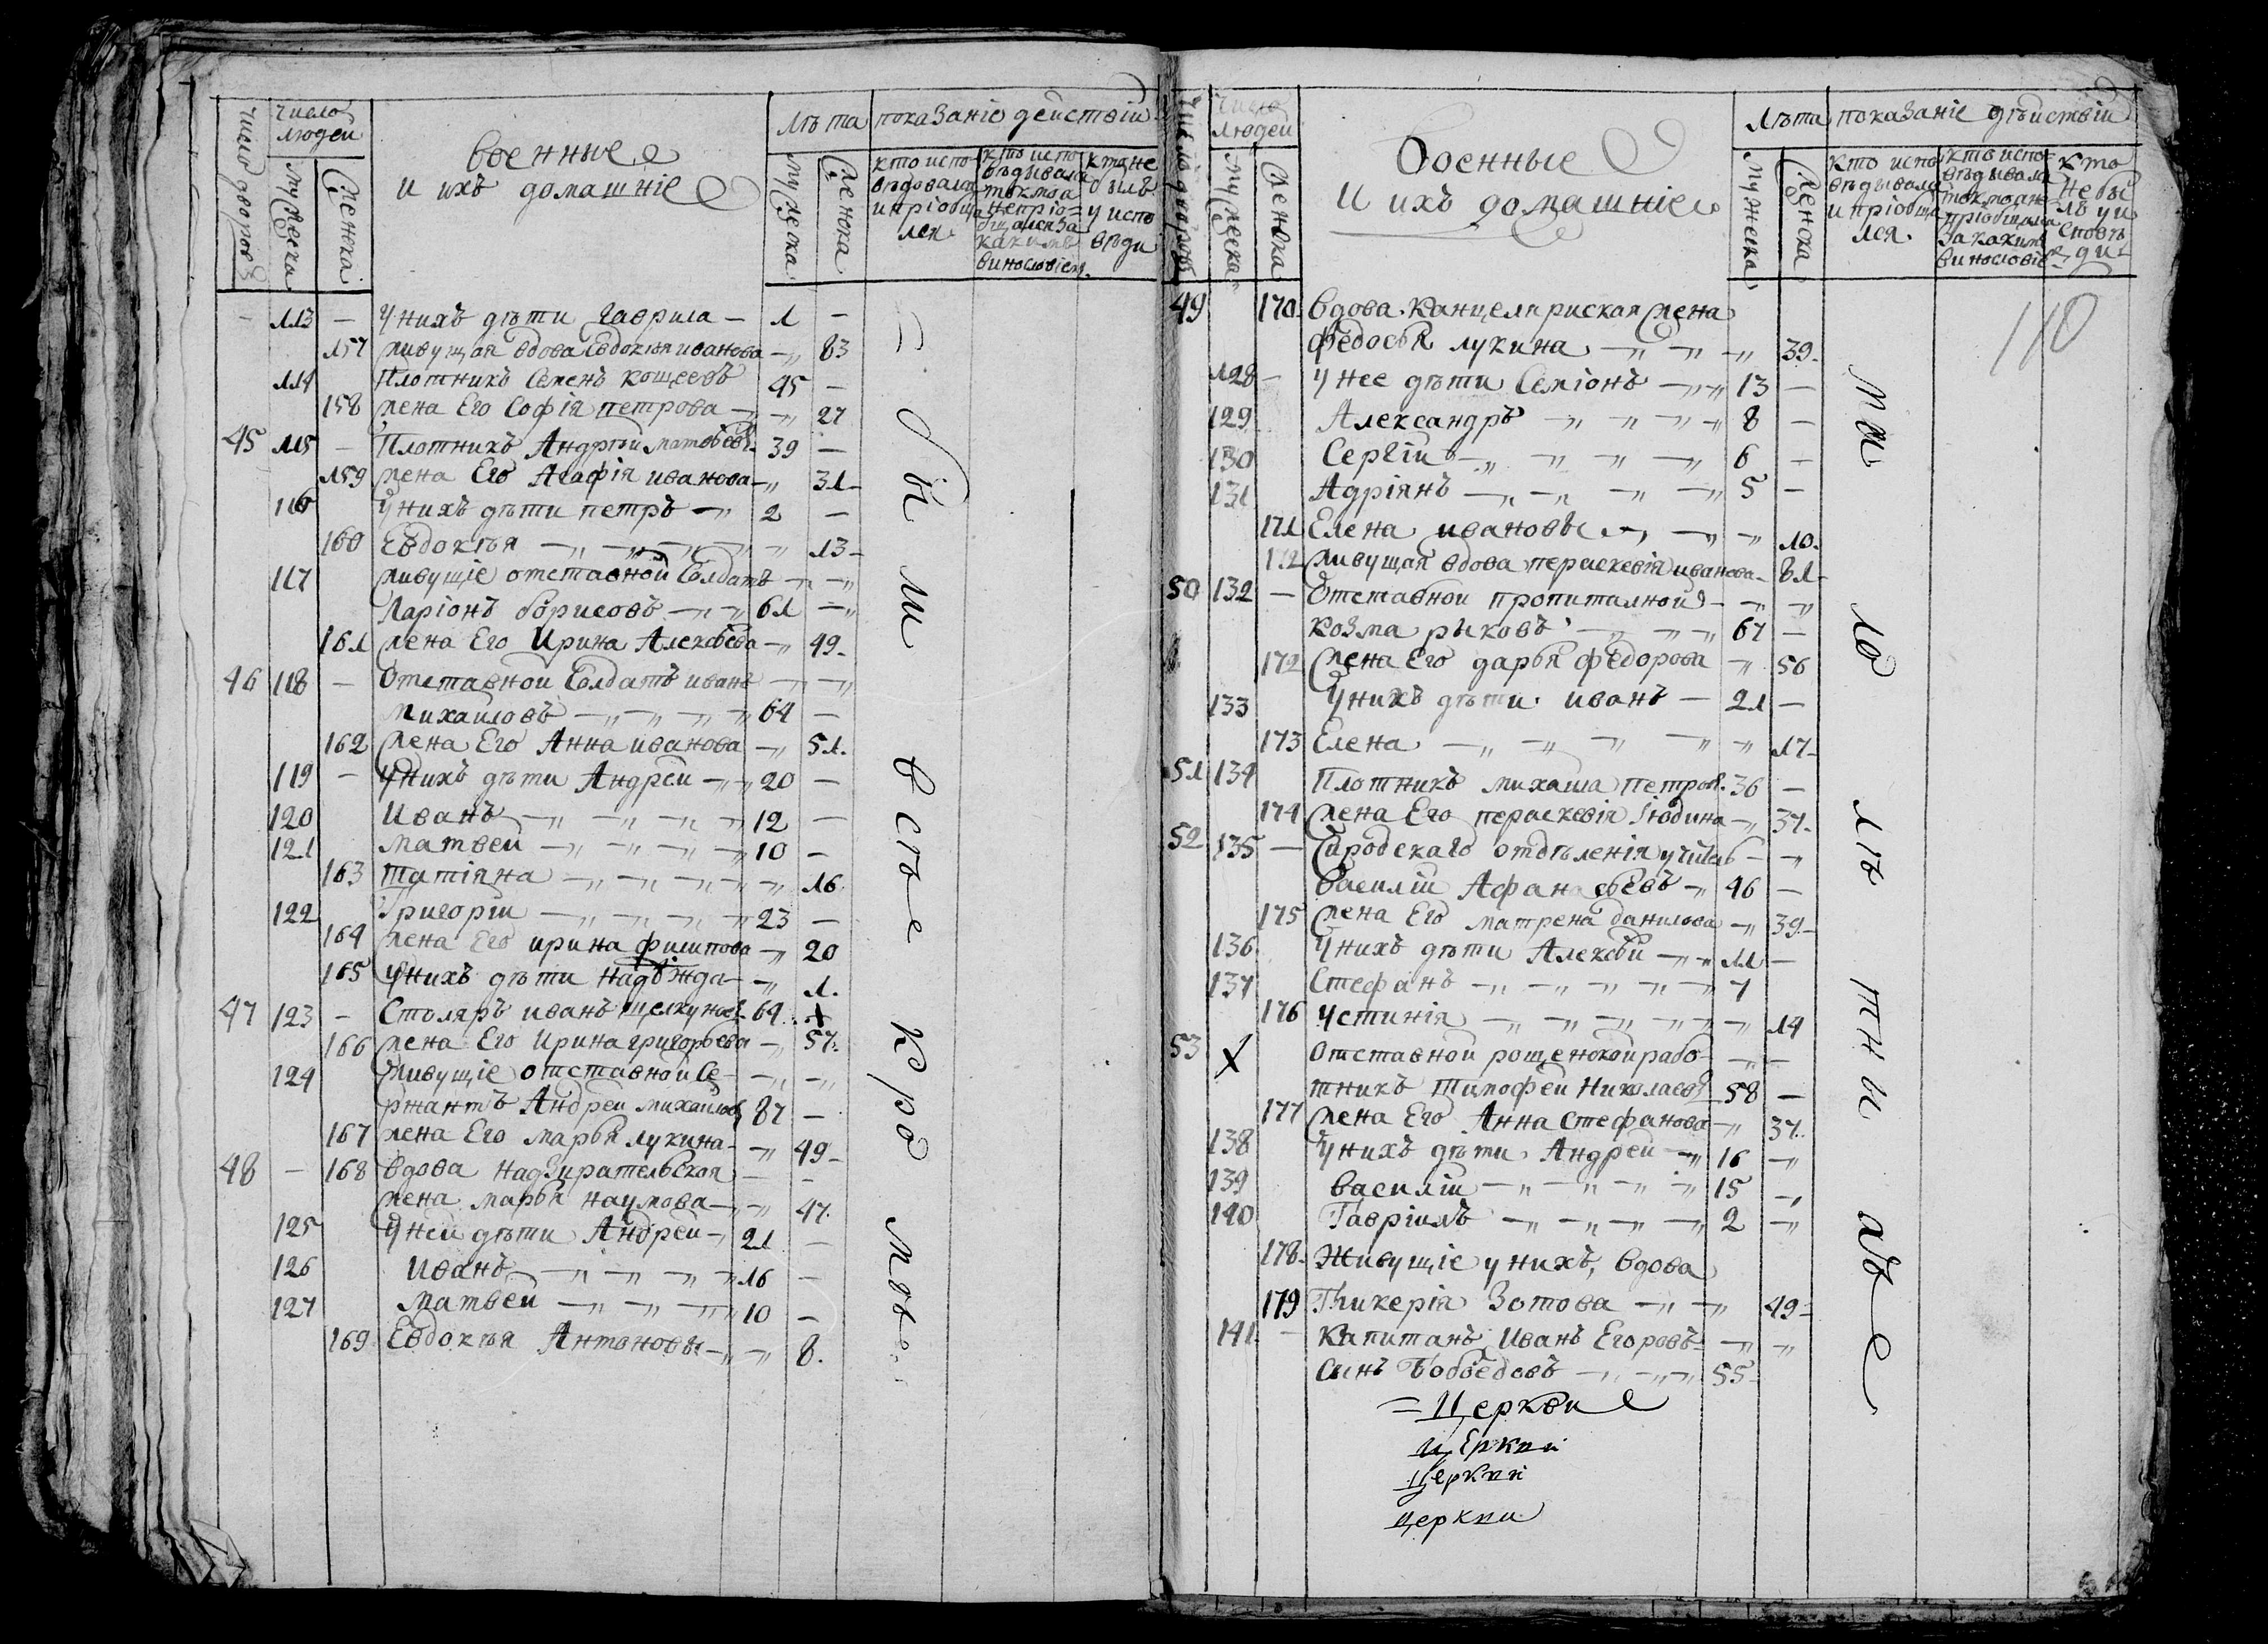 число дворовъ
число людей
мужеска
женска
военные
и ихъ домашніе
лѣта
мужеска
женска
показаніе действій
кто испо-
вѣдовался
и пріобща
лся
кто испо
вѣдывался
токмо а
не пріо-
бщался за
какимъ
винословіемъ
кто не
былъ
у испо
вѣди
113 – У нихъ дѣти Гаврила – 1 –
157 живущая вдова Евдокѣя иванова – 83
114 Плотникъ Семенъ Кощеевъ 45 –
158 жена Его Софія петрова – 27
45 115 – Плотникъ Андрѣй матвѣевъ 39 –
159 жена Его Агафія иванова – 31
116 У нихъ дѣти петръ – 2 –
160 Евдокѣя – 13
117 живущіе отставной Солдатъ
Ларіонъ борисовъ – 61 –
161 жена Его Ирина Алексѣева – 49
46 118 – Отставной Солдатъ иванъ
михаиловъ – 64 –
162 жена Его Анна иванова – 51
119 – У нихъ дѣти Андрей – 20 –
120 Иванъ – 12 –
121 матвей – 10 –
163 татіяна – 16
122 Григорій – 23 –
164 жена Его ирина филипова – 20
165 У нихъ дѣти надѣжда – 1
47 123 – Столяръ иванъ щелкуновъ 64 +
166 жена Его Ирина григорьева – 57
124 живущіе отставной Се-
ржантъ Андрей михаиловъ 87 –
167 жена Его марья лукина – 49
48 – 168 вдова надзирательская –
жена марья наумова – 47
125 У ней дѣти Андрей – 21 –
126 Иванъ – 16 –
127 матвей – 10 –
169 Евдокѣя Антоновы – 8
= были всѣ кромѣ
число дворовъ
число
людей
мужеска
женска
военные
и ихъ домашніе
лѣта
мужеска
женска
показаніе дѣйствій
кто испо
вѣдывался
и пріобща
лся
кто испо-
вѣдывался
токмо а не
пріобщался
за какимъ
винословіе
кто
не бы
лъ у и
сповѣ
ди
110
49 170 вдова Канцеляриская жена
федосья лукина – 39
128 – У нее дѣти Семіонъ – 13 –
129 Александръ – 8 –
130 Сергій – 6 –
131 Адріянъ – 5 –
171 Елена ивановы – 10
172 живущая вдова параскевія иванова – 81
50 132 – Отставной пропиталной –
козма рыковъ – 67 –
172 жена Его дарья федорова – 56
133 У нихъ дѣти иванъ – 21 –
173 Елена – 17
51 134 Плотникъ михаила петров. 36 –
174 жена Его параскевія Июдина – 37
52 135 – отдѣленія
василій Афанасьевъ – 46 –
175 жена Его матрена данилова – 39
136 У нихъ дѣти Алексѣй – 11 –
137 Стефанъ – 7
176 Устинія – 14
53 X Отставной рощенской рабо-
тникъ тимофей Николаевъ 58 –
177 жена Его Анна Стефанова – 37
138 У нихъ дѣти Андрей – 16 –
139 василій – 15 –
140 Гавріилъ – 2 –
178 Живущіе у нихъ, вдова
179 Гликерія Зотова – 49
141 – Капитанъ Иванъ Егоровъ –
Сынъ – 55
= Церкви
церкви
Церкви
церкви
малолѣтныхъ